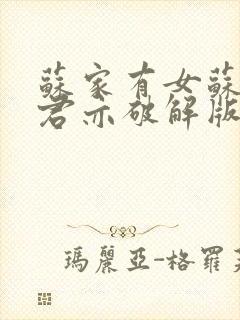 蘇家有女蘇
君亦破解版
瑪麗亞-格羅